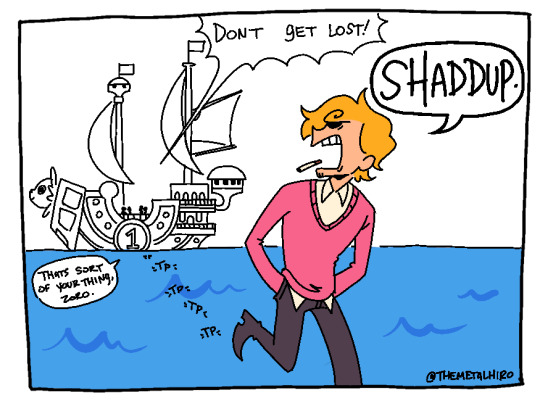 DONT GET LOST!
SHADDUP.
THATS SORT
OF YOUR THING,
ZORO.
1
TP
TP
TP
TP
TP
@THEMETALHIRO